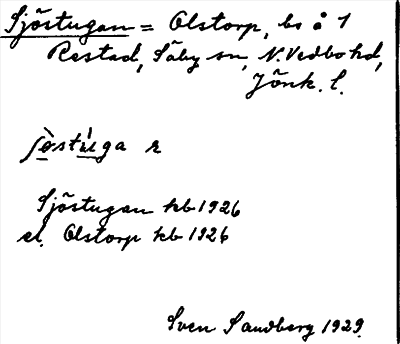 Sjöstugan = Olstorp, bs å 1
Restad, Säby sn, N. Vedbo hd,
Jönk. l.
Sjöstugan kb 1926
el. Olstorp kb 1926
Sven Sandberg 1929.